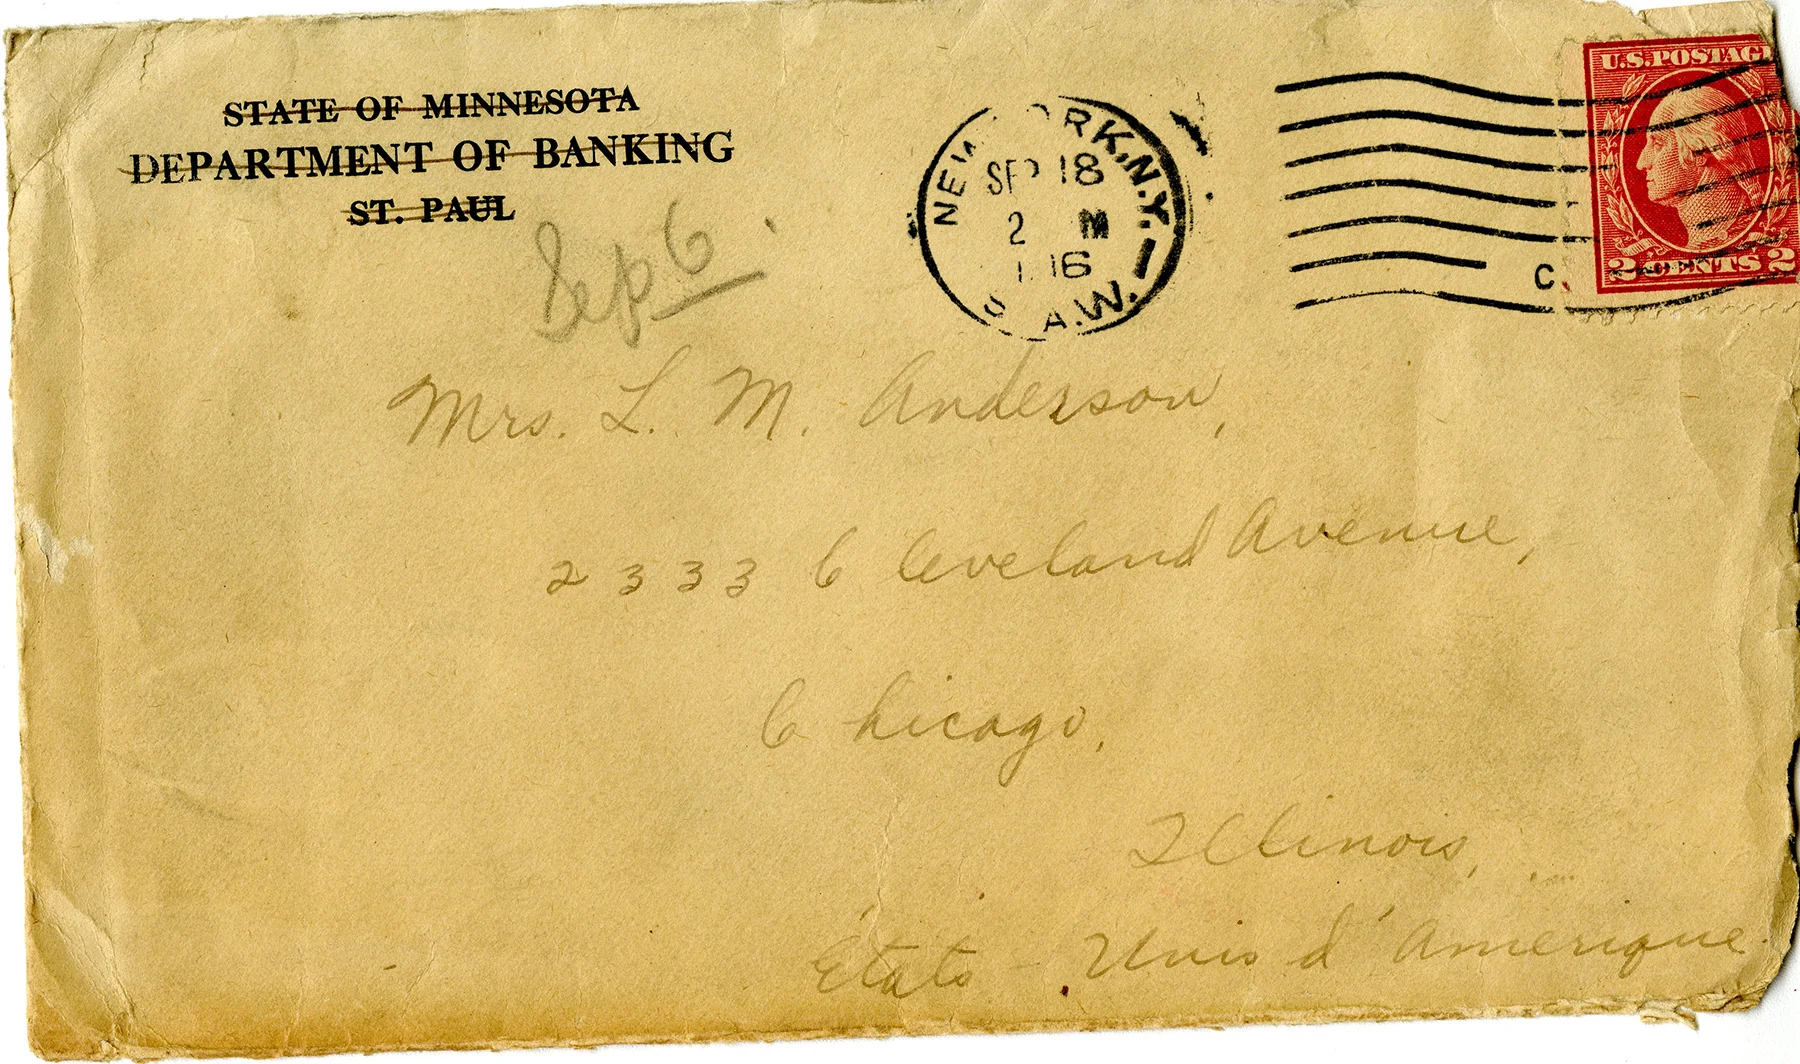 STATE OF MINNESOTA
DEPARTMENT OF BANKING
ST. PAUL
Sep 6
NEW YORK, N.Y.
SEP 18
2 M
1916
U.S. POSTAGE
2 CENTS 2
C.
A.W.
Mrs. L. M. Anderson,
2333 Cleveland Avenue,
Chicago,
Illinois,
États-Unis d'Amérique